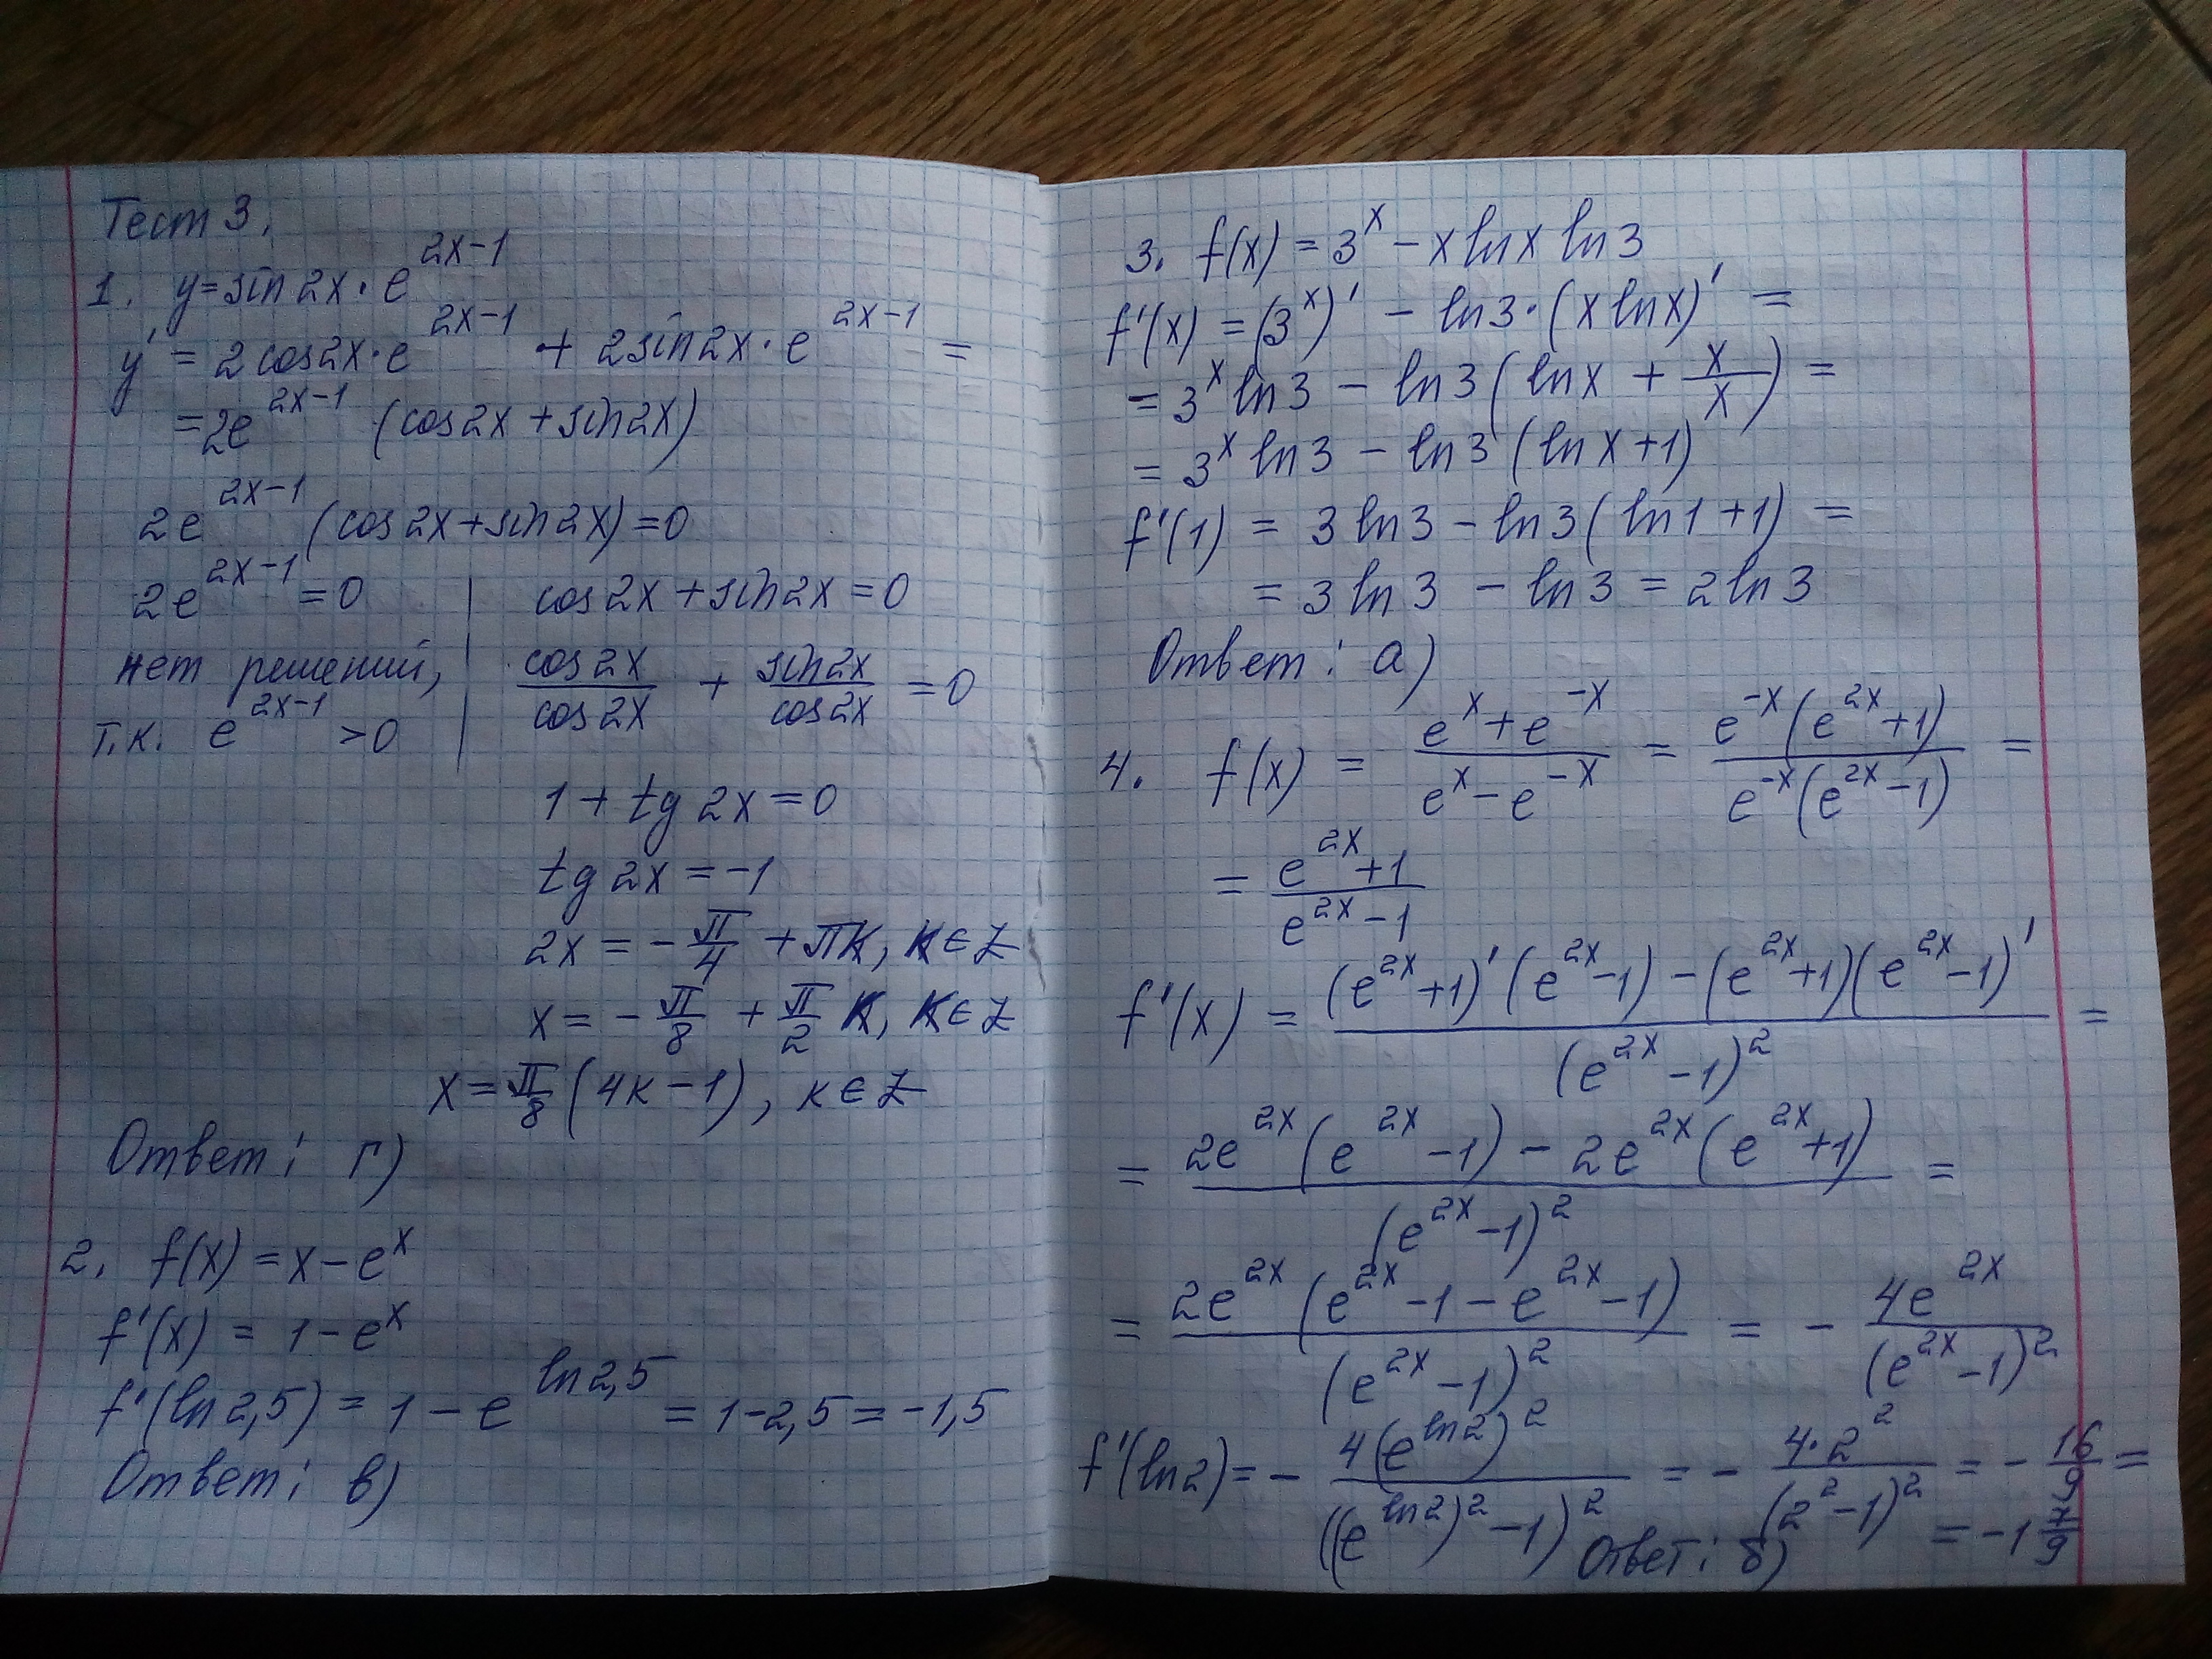 Тест 3.
1. y=sin2x·e^(2x-1)
y' = 2cos2x·e^(2x-1) + 2sin2x·e^(2x-1) =
=2e^(2x-1) (cos2x+sin2x)
2e^(2x-1) (cos2x+sin2x)=0
2e^(2x-1) =0 | cos2x+sin2x=0
нет решений, | cos2x/cos2x + sin2x/cos2x =0
т.к. e^(2x-1) >0
1+tg2x=0
tg2x=-1
2x=-π/4 +πk, k∈Z
x=-π/8 +π/2 k, k∈Z
x=π/8 (4k-1), k∈Z
Ответ: г)
2. f(x)=x-e^x
f'(x) = 1-e^x
f'(ln2,5) = 1-e^(ln2,5) =1-2,5=-1,5
Ответ: в)
3. f(x) =3^x -xlnx ln3
f'(x) =(3^x)' - ln3·(xlnx)' =
=3^x ln3 - ln3(lnx + x/x) =
= 3^x ln3 - ln3(lnx+1)
f'(1) = 3ln3-ln3(ln1+1) =
= 3ln3 - ln3 = 2ln3
Ответ: а)
4. f(x) = (e^x+e^(-x))/(e^x-e^(-x)) = (e^(-x)(e^(2x)+1))/(e^(-x)(e^(2x)-1)) =
= (e^(2x)+1)/(e^(2x)-1)
f'(x) = ((e^(2x)+1)'(e^(2x)-1)-(e^(2x)+1)(e^(2x)-1)')/(e^(2x)-1)^2 =
= (2e^(2x)(e^(2x)-1)-2e^(2x)(e^(2x)+1))/(e^(2x)-1)^2 =
= (2e^(2x)(e^(2x)-1-e^(2x)-1))/(e^(2x)-1)^2 = - 4e^(2x)/(e^(2x)-1)^2
f'(ln2)=- 4(e^(ln2))^2/((e^(ln2))^2-1)^2 = - 4·2^2/(2^2-1)^2 = - 16/9 =
= -1 7/9
Ответ: б)